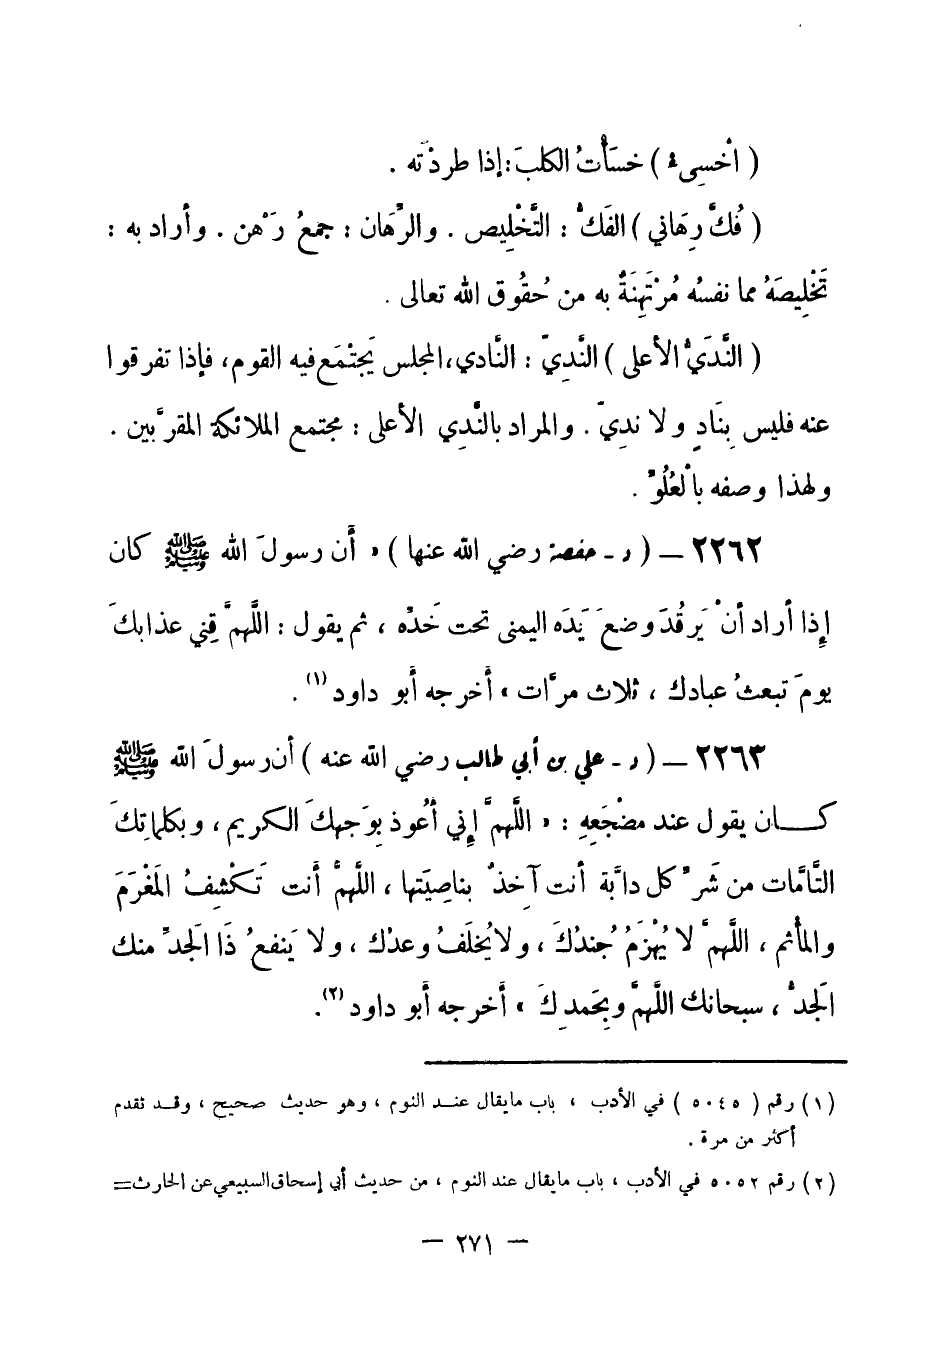 ( اْخسِىء ) خسَأْتُ الكلبَ : إذا طردْتَه .
( فُكَّ رِهَاني ) الفَكُّ : التَّخْلِيص . والرِّهَان : جمعُ رَهْن . وأراد به :
تَخْلِيصَهُ مما نفسُه مُرْتَهِنَةٌ به من حُقُوق الله تعالى .
( النَّدَيُّ الأعلى ) النَّدِيّ : النَّادي ، المجلس يَجتْمَع فيه القوم ، فإذا تفرقوا
عنه فليس بِنَادٍ ولا نديّ . والمراد بالنَّدِي الأعلى : مجتمع الملائكة المقرَّبين .
ولهذا وصفه بالْعُلُوِّ .
٢٢٦٢ – ( د - حفصة رضي الله عنها ) « أن رسولَ الله ﷺ كان
إِذا أراد أنْ يَرقُدَ وضعَ يَدَه اليمنى تحت خَدِّه ، ثم يقول : اللَّهمَّ قِني عذابكَ
يومَ تبعثُ عبادك ، ثلاث مرَّات » أخرجه أبو داود (١) .
٢٢٦٣ – ( د - علي بن أبي طالب رضي الله عنه ) أن رسولَ الله ﷺ
كـــان يقول عند مضْجَعِهِ : « اللَّهمَّ إِني أعُوذ بوَجهكَ الكريم ، وبكلماتِكَ
التَّامَّات من شَرِّ كل دابَّة أنت آخِذٌ بناصِيَتها ، اللَّهمَّ أنت تَكْشِفُ المَغْرَمَ
والمأثم ، اللَّهمَّ لا يُهْزَمُ جُندُكَ ، ولا يُخلَفُ وعدُك ، ولا يَنفعُ ذَا الجَدِّ منك
الجَدُّ ، سبحانك اللَّهمَّ وبِحَمدِكَ » أخرجه أبو داود (٢) .
(١) رقم ( ٥٠٤٥ ) في الأدب ، باب مايقال عنــد النوم ، وهو حديث صحيح ، وقـد تقدم
أكثر من مرة .
(٢) رقم ٥٠٥٢ في الأدب ، باب مايقال عند النوم ، من حديث أبي إسحاق السبيعي عن الحارث =
– ٢٧١ –